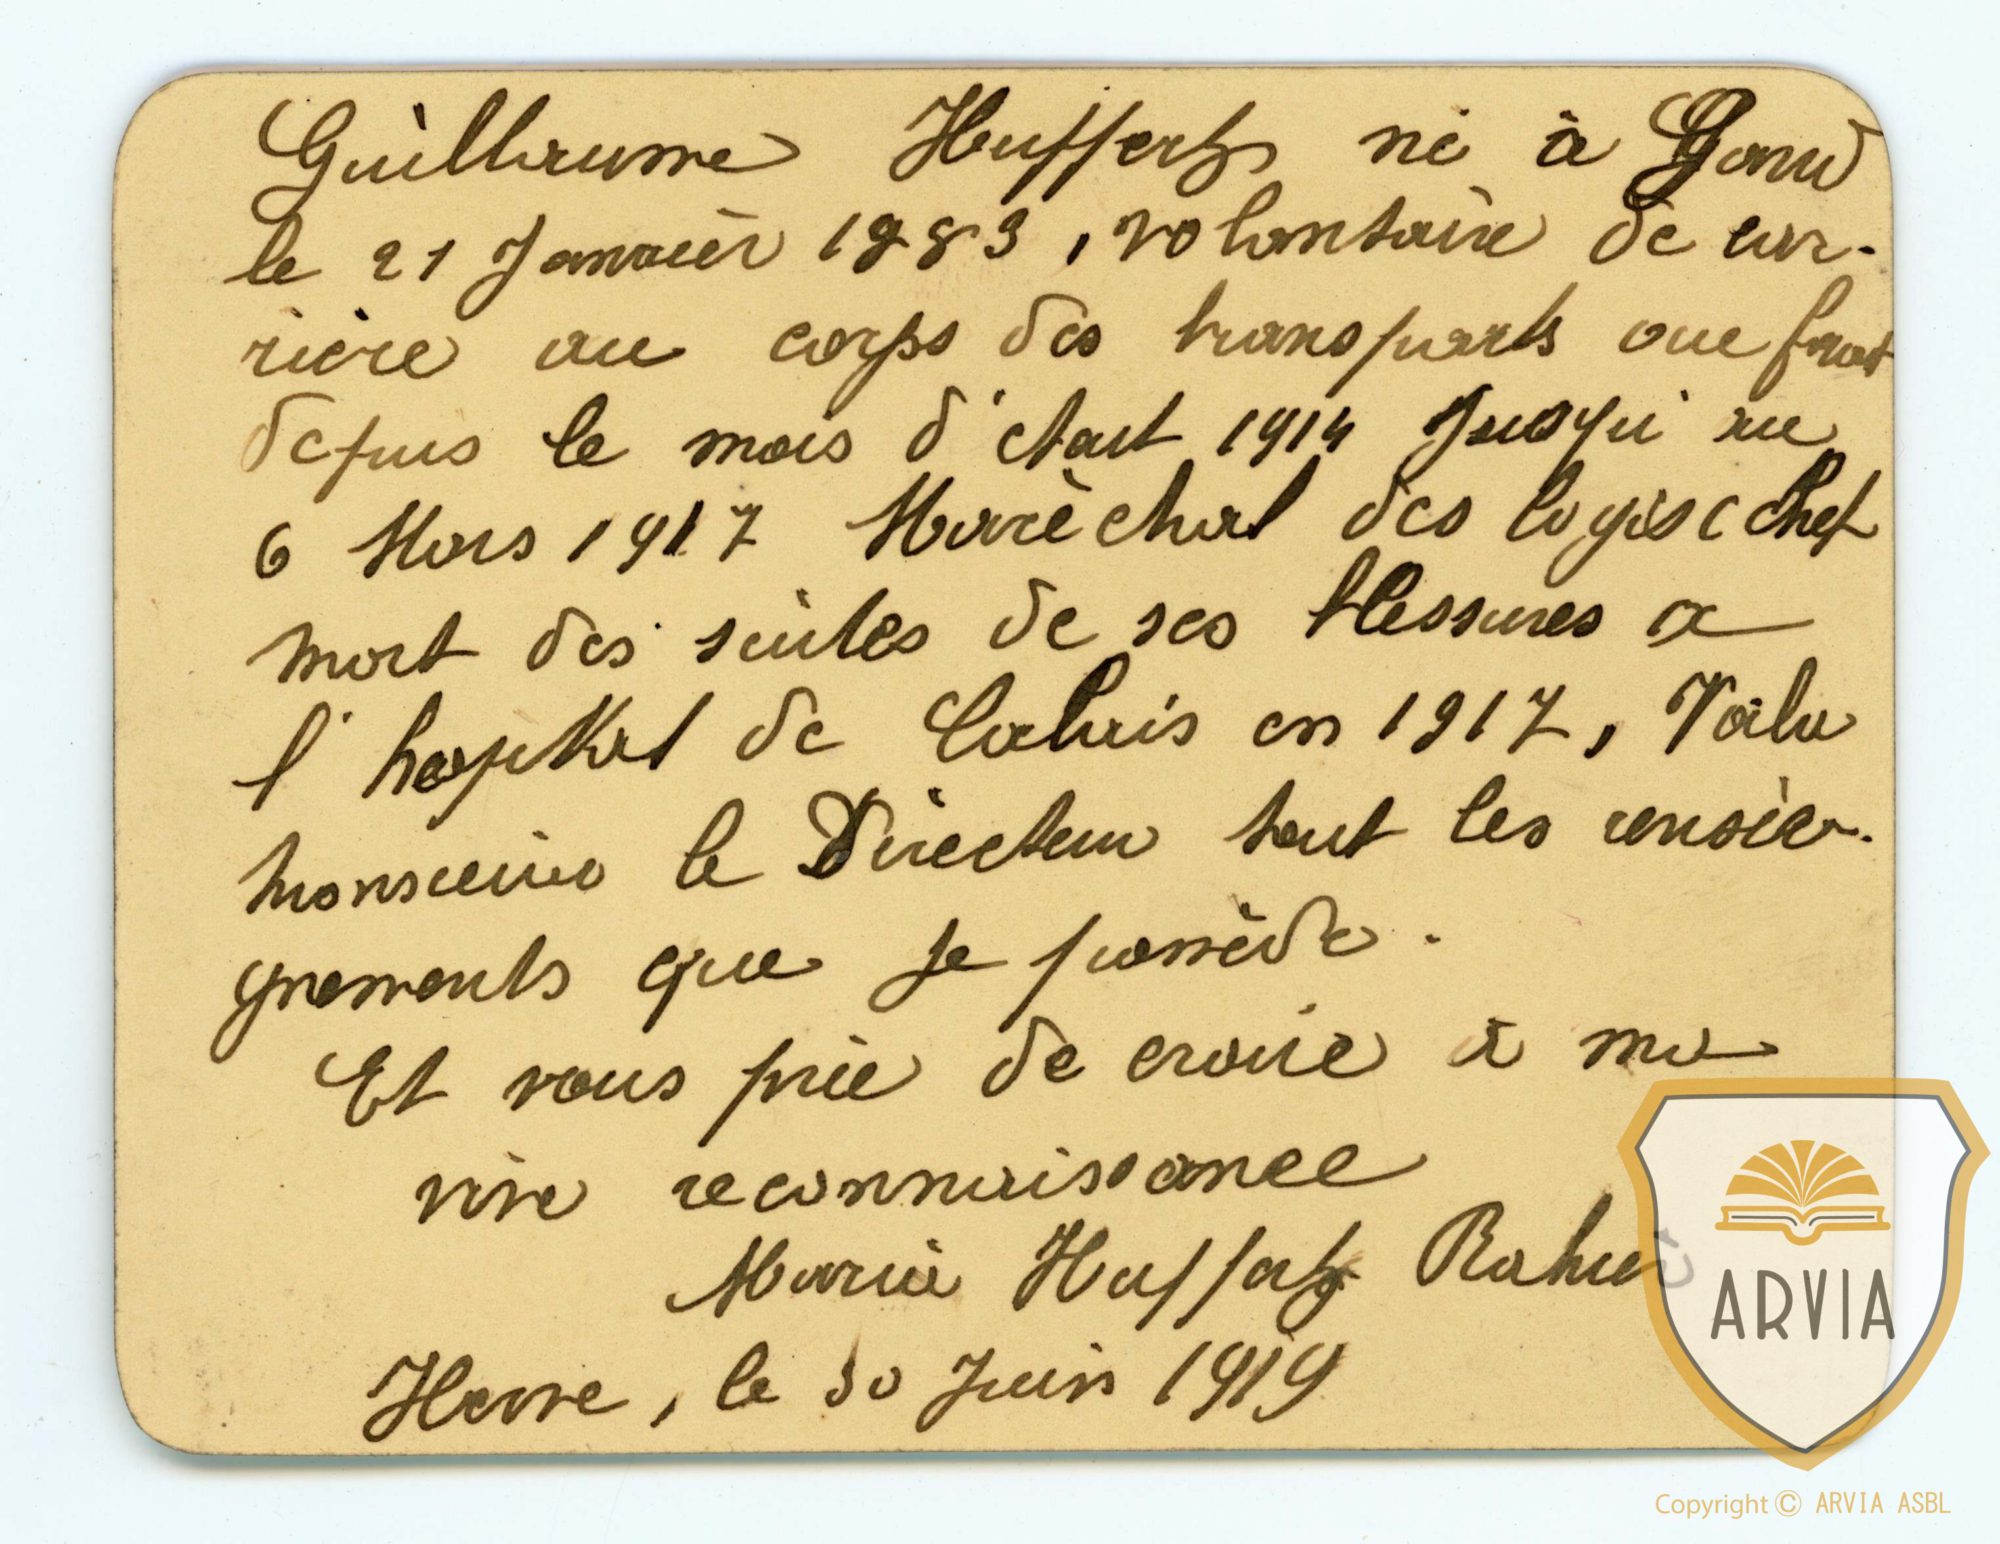 Guillaume Hufferts né à Gand
le 21 Janvier 1883, volontaire de car-
rière au corps des transports au front
depuis le mois d'Aout 1914 Jusqu'au
6 Mars 1917 Maréchal des logis c chef
mort des suites de ses blessures a
l'hopital de Calais en 1917, Voila
monsieur le Directeur tout les rensei-
gnements que je possède.
Et vous prie de croire à ma
vive reconnaissance
Maria
Herve, le 30 Juin 1919
ARVIA
Copyright © ARVIA ASBL